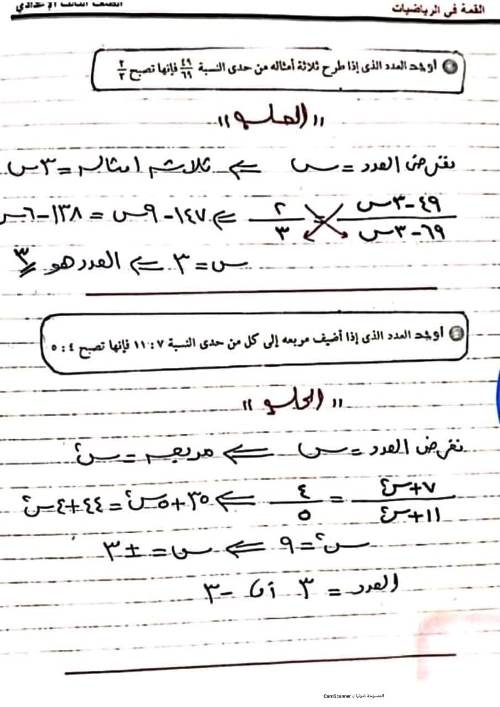 القمة في الرياضيات
الصف الثالث الإعدادي
أوجد العدد الذى إذا طرح ثلاثة أمثاله من حدى النسبة ٤٩/٦٩ فإنها تصبح ٢/٣
"الحلـــو"
نفرض العدد = س ⇐ ثلاثة أمثاله = ٣س
٤٩-٣س / ٦٩-٣س = ٢/٣ ⇐ ١٤٧-٩س = ١٣٨-٦س
س = ٣ ⇐ العدد هو ٣
أوجد العدد الذى إذا أضيف مربعه إلى كل من حدى النسبة ٧ : ١١ فإنها تصبح ٤ : ٥
"الحلـــو"
نفرض العدد = س ⇐ مربعه = س²
٧+س² / ١١+س² = ٤/٥ ⇐ ٣٥+٥س² = ٤٤+٤س²
س² = ٩ ⇐ س = ±٣
العدد = ٣ أ، -٣
الممسوحة ضوئيا بـ CamScanner